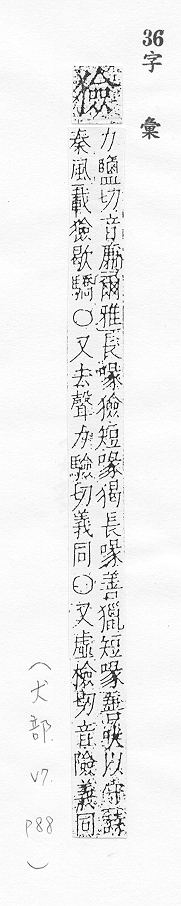 36
字彙
獫
力鹽切音廉爾雅長喙獫短喙猲長喙善獵短喙善吠以守
秦風載獫歇驕〇又去聲力驗切義同〇又虛檢切音險義同
(犬部 V7. P88)